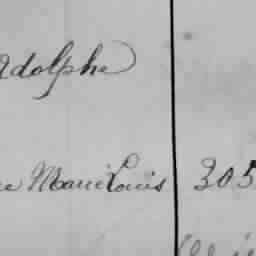 Adolphe
Marie Louis 305